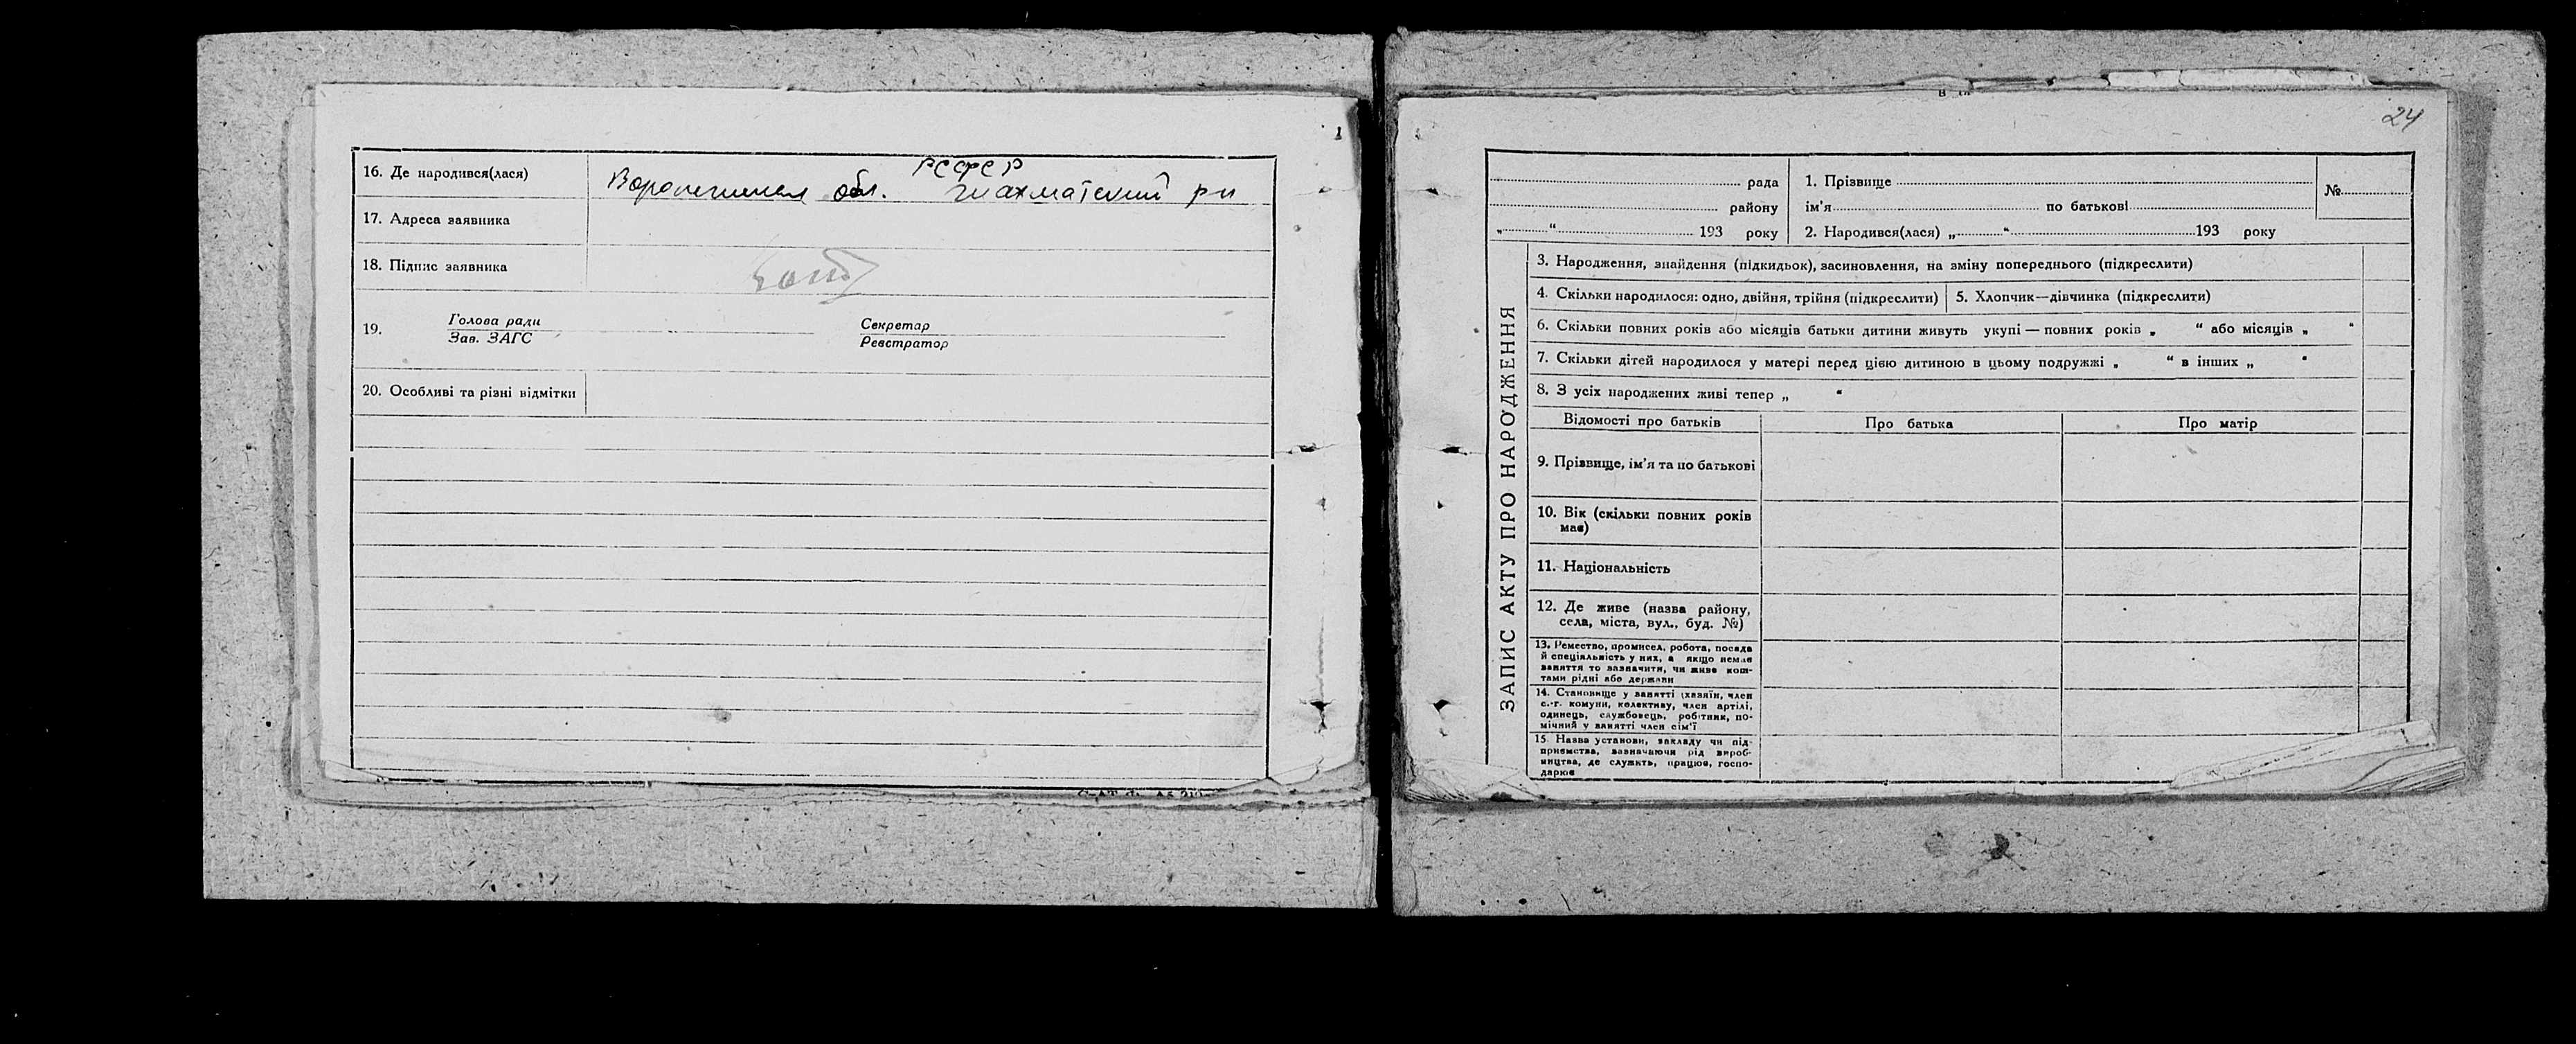 16. Де народився(лася)
РСФСР
обл. рн
17. Адреса заявника
18. Підпис заявника
19. Голова ради
Зав. ЗАГС
Секретар
Реєстратор
20. Особливі та різні відмітки
24
рада
району
„ “ 193 року
1. Прізвище
ім'я по батькові
2. Народився(лася) „ “ 193 року
№
ЗАПИС АКТУ ПРО НАРОДЖЕННЯ
3. Народження, знайдення (підкидьок), засиновлення, на зміну попереднього (підкреслити)
4. Скільки народилося: одно, двійня, трійня (підкреслити)
5. Хлопчик—дівчинка (підкреслити)
6. Скільки повних років або місяців батьки дитини живуть укупі — повних років „ “ або місяців „ “
7. Скільки дітей народилося у матері перед цією дитиною в цьому подружжі „ “ в інших „ “
8. З усіх народжених живі тепер „ “
Відомості про батьків
Про батька
Про матір
9. Прізвище, ім'я та по батькові
10. Вік (скільки повних років
має)
11. Національність
12. Де живе (назва району,
села, міста, вул., буд. №)
13. Ремество, промисел, робота, посада
й спеціяльність у них, а якщо немає
заняття то зазначити, чи живе кош-
тами рідні або держави
14. Становище у занятті (хазяїн, член
с.-г. комуни, колективу, член артілі,
одинець, службовець, робітник, по-
мічний у занятті член сім'ї
15. Назва установи, закладу чи під-
приємства, зазначаючи рід вироб-
ництва, де служить, працює, госпо-
дарює